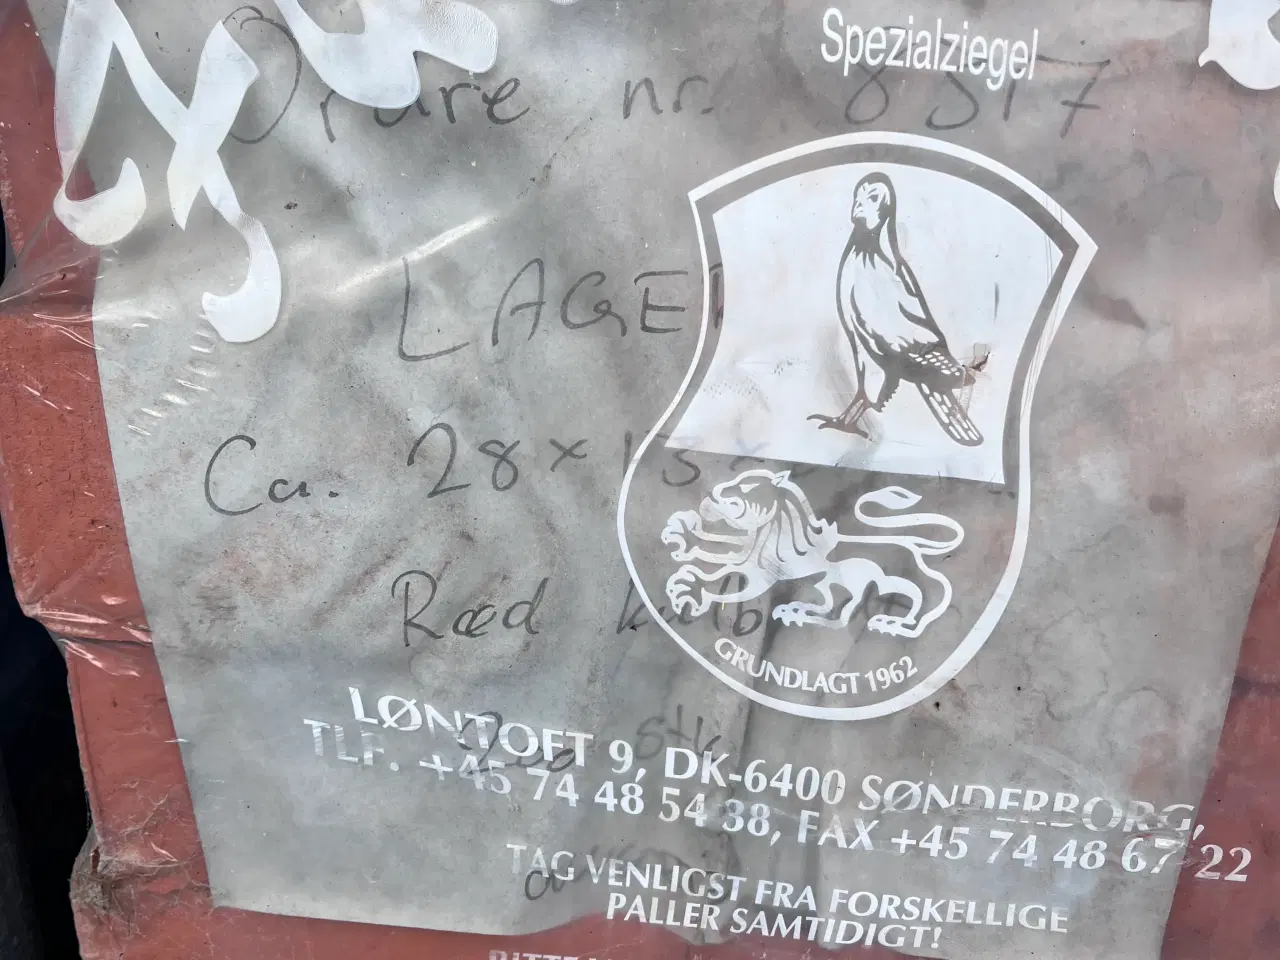 Spezialziegel
Ordre nr. 8317
LAGER
Ca. 28 x 13 x
Rød
GRUNDLAGT 1962
stk
LØNTOFT 9, DK-6400 SØNDERBORG,
TLF. +45 74 48 54 38, FAX +45 74 48 67 22
TAG VENLIGST FRA FORSKELLIGE
PALLER SAMTIDIGT!